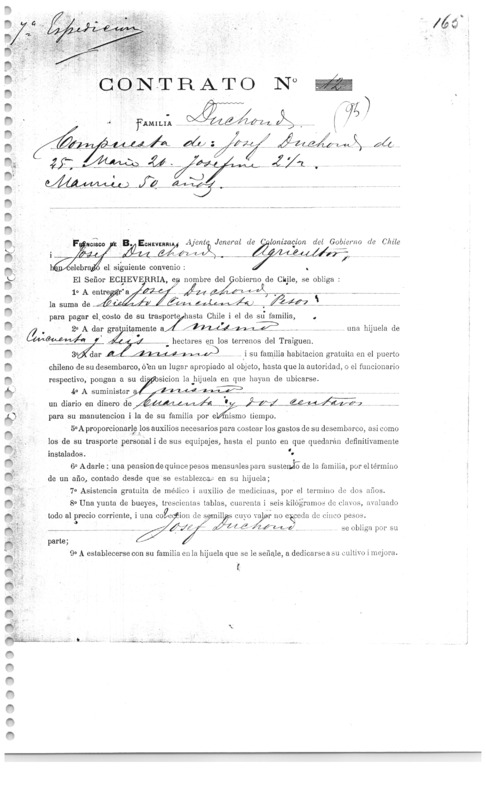 7ª Expedicion
165
CONTRATO Nº 12
(95)
FAMILIA Duchond
Compuesta de: Josef Duchond de
25. Marie 20. Josefine 2 1/2.
Maurice 50 años.
FRANCISCO DE B. ECHEVERRIA, Ajente Jeneral de Colonizacion del Gobierno de Chile
i Josef Duchond. Agricultor,
han celebrado el siguiente convenio:
El Señor ECHEVERRIA, en nombre del Gobierno de Chile, se obliga:
1º A entregar a Josef Duchond
la suma de Ciento Cincuenta Pesos
para pagar el costo de su trasporte hasta Chile i el de su familia,
2º A dar gratuitamente a l mismo una hijuela de
Cincuenta y seis hectares en los terrenos del Traiguen.
3º A dar al mismo i su familia habitacion gratuita en el puerto
chileno de su desembarco, ó en un lugar apropiado al objeto, hasta que la autoridad, o el funcionario
respectivo, pongan a su disposicion la hijuela en que hayan de ubicarse.
4º A suministrar a l mismo
un diario en dinero de Cuarenta y dos centavos
para su manutencion i la de su familia por el mismo tiempo.
5º A proporcionarle los auxilios necesarios para costear los gastos de su desembarco, así como
los de su trasporte personal i de sus equipajes, hasta el punto en que quedarán definitivamente
instalados.
6º A darle: una pension de quince pesos mensuales para sustento de la familia, por el término
de un año, contado desde que se establezca en su hijuela;
7º Asistencia gratuita de médico i auxilio de medicinas, por el termino de dos años.
8º Una yunta de bueyes, trescientas tablas, cuarenta i seis kilógramos de clavos, avaluado
todo al precio corriente, i una coleccion de semillas cuyo valor no exceda de cinco pesos.
Josef Duchond se obliga por su
parte;
9º A establecerse con su familia en la hijuela que se le señale, a dedicarse a su cultivo i mejora.